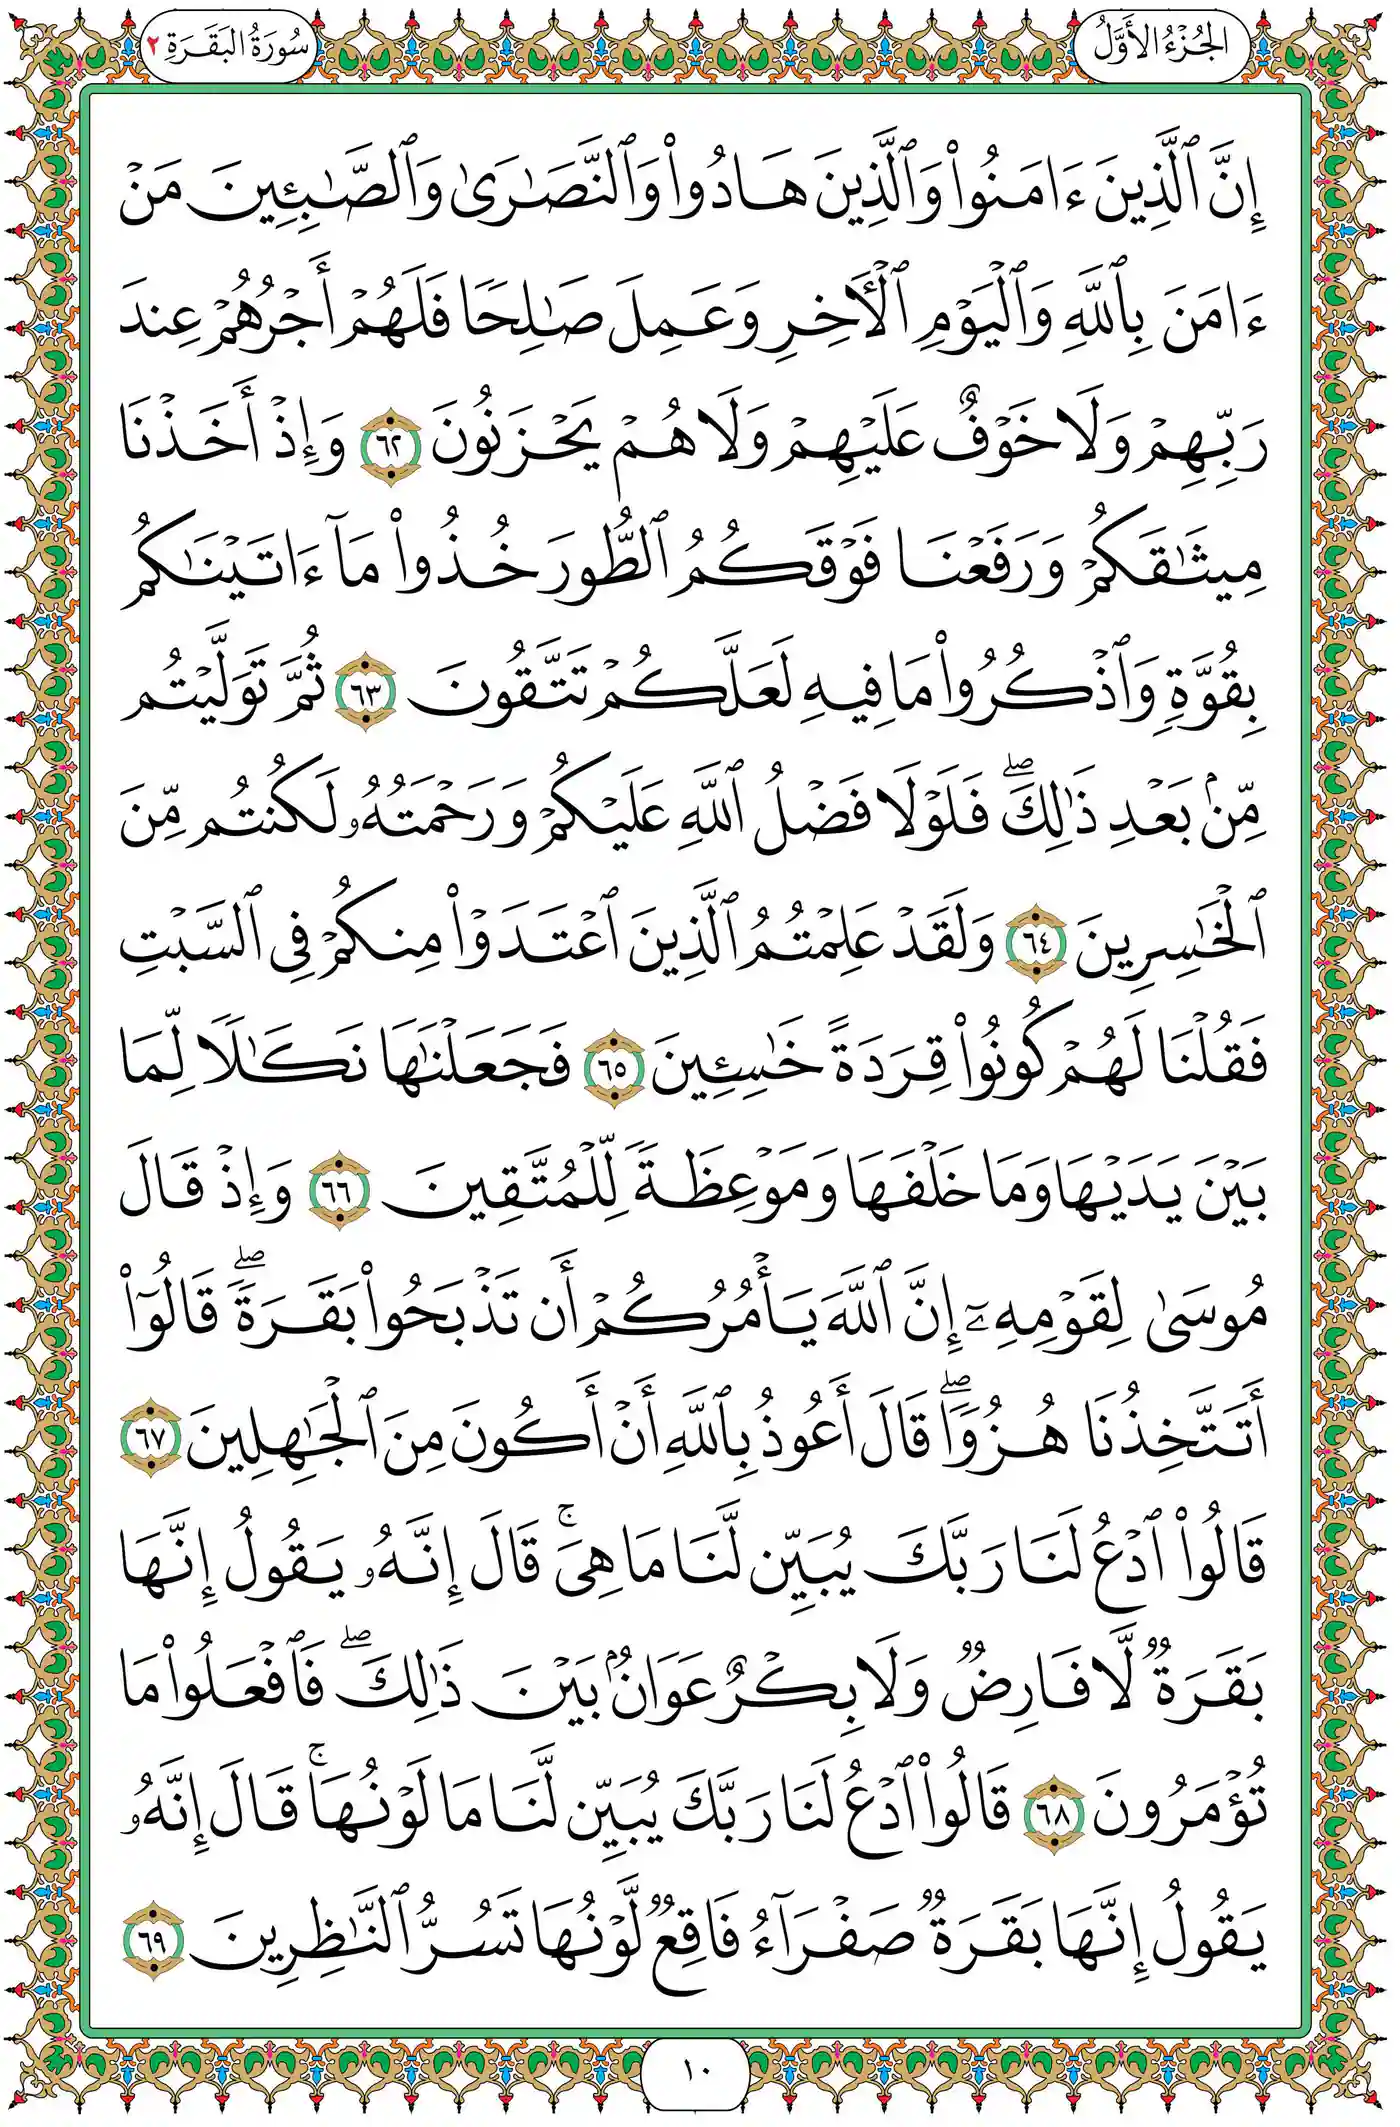 الجُزْءُ الأَوَّلُ
سُورَةُ البَقَرَةِ ٢
إِنَّ ٱلَّذِينَ ءَامَنُوا۟ وَٱلَّذِينَ هَادُوا۟ وَٱلنَّصَـٰرَىٰ وَٱلصَّـٰبِـِٔينَ مَنْ
ءَامَنَ بِٱللَّهِ وَٱلْيَوْمِ ٱلْـَٔاخِرِ وَعَمِلَ صَـٰلِحًا فَلَهُمْ أَجْرُهُمْ عِندَ
رَبِّهِمْ وَلَا خَوْفٌ عَلَيْهِمْ وَلَا هُمْ يَحْزَنُونَ ٦٢ وَإِذْ أَخَذْنَا
مِيثَـٰقَكُمْ وَرَفَعْنَا فَوْقَكُمُ ٱلطُّورَ خُذُوا۟ مَآ ءَاتَيْنَـٰكُم
بِقُوَّةٍ وَٱذْكُرُوا۟ مَا فِيهِ لَعَلَّكُمْ تَتَّقُونَ ٦٣ ثُمَّ تَوَلَّيْتُم
مِّنۢ بَعْدِ ذَٰلِكَ ۖ فَلَوْلَا فَضْلُ ٱللَّهِ عَلَيْكُمْ وَرَحْمَتُهُۥ لَكُنتُم مِّنَ
ٱلْخَـٰسِرِينَ ٦٤ وَلَقَدْ عَلِمْتُمُ ٱلَّذِينَ ٱعْتَدَوْا۟ مِنكُمْ فِى ٱلسَّبْتِ
فَقُلْنَا لَهُمْ كُونُوا۟ قِرَدَةً خَـٰسِـِٔينَ ٦٥ فَجَعَلْنَـٰهَا نَكَـٰلًا لِّمَا
بَيْنَ يَدَيْهَا وَمَا خَلْفَهَا وَمَوْعِظَةً لِّلْمُتَّقِينَ ٦٦ وَإِذْ قَالَ
مُوسَىٰ لِقَوْمِهِۦٓ إِنَّ ٱللَّهَ يَأْمُرُكُمْ أَن تَذْبَحُوا۟ بَقَرَةً ۖ قَالُوٓا۟
أَتَتَّخِذُنَا هُزُوًا ۖ قَالَ أَعُوذُ بِٱللَّهِ أَنْ أَكُونَ مِنَ ٱلْجَـٰهِلِينَ ٦٧
قَالُوا۟ ٱدْعُ لَنَا رَبَّكَ يُبَيِّن لَّنَا مَا هِىَ ۚ قَالَ إِنَّهُۥ يَقُولُ إِنَّهَا
بَقَرَةٌ لَّا فَارِضٌ وَلَا بِكْرٌ عَوَانٌۢ بَيْنَ ذَٰلِكَ ۖ فَٱفْعَلُوا۟ مَا
تُؤْمَرُونَ ٦٨ قَالُوا۟ ٱدْعُ لَنَا رَبَّكَ يُبَيِّن لَّنَا مَا لَوْنُهَا ۚ قَالَ إِنَّهُۥ
يَقُولُ إِنَّهَا بَقَرَةٌ صَفْرَآءُ فَاقِعٌ لَّوْنُهَا تَسُرُّ ٱلنَّـٰظِرِينَ ٦٩
١٠